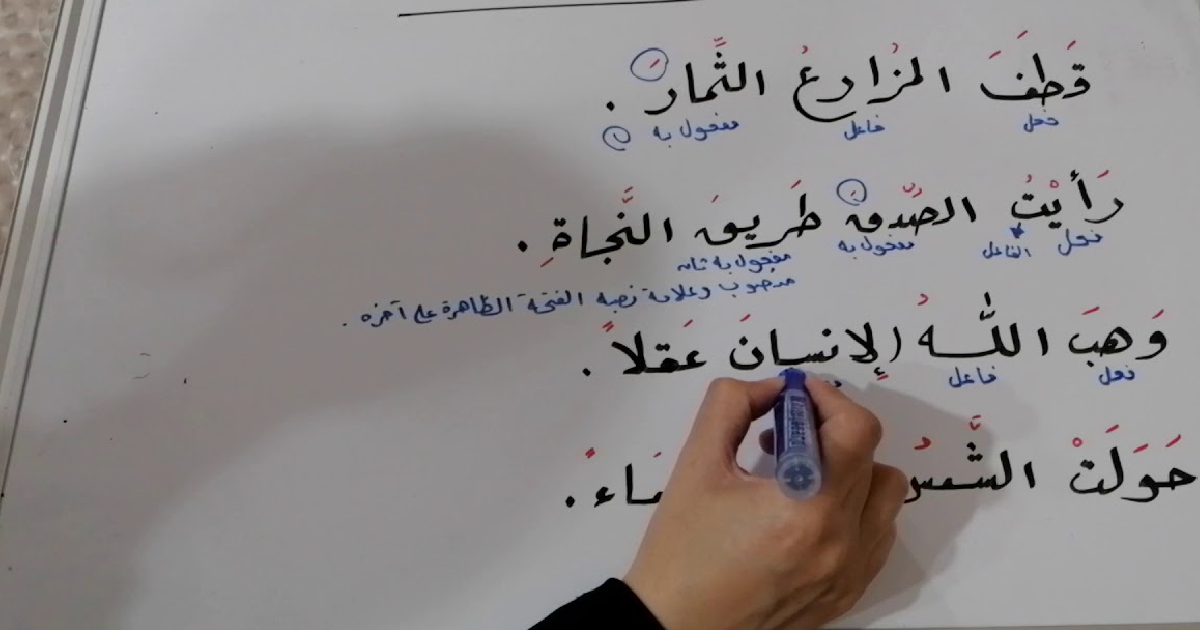 قَطَفَ المُزارِعُ الثَّمارَ .
فعل فاعل مفعول به
رَأَيْتُ الصِّدقَ طَريقَ النَّجاةِ .
فعل الفاعل مفعول به مفعول به ثان
منصوب وعلامة نصبه الفتحة الظاهرة على آخره .
وَهَبَ اللّٰهُ الإِنسانَ عَقلاً .
فعل فاعل
حَوَّلَتْ الشَّمسُ ماءً .